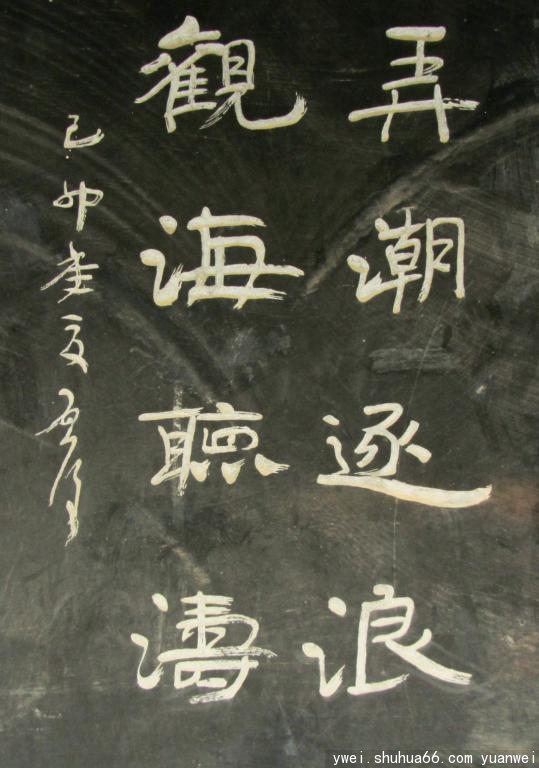 弄潮逐浪
觀海聽濤
己卯年夏
ywei.shuhua66.com yuanwei